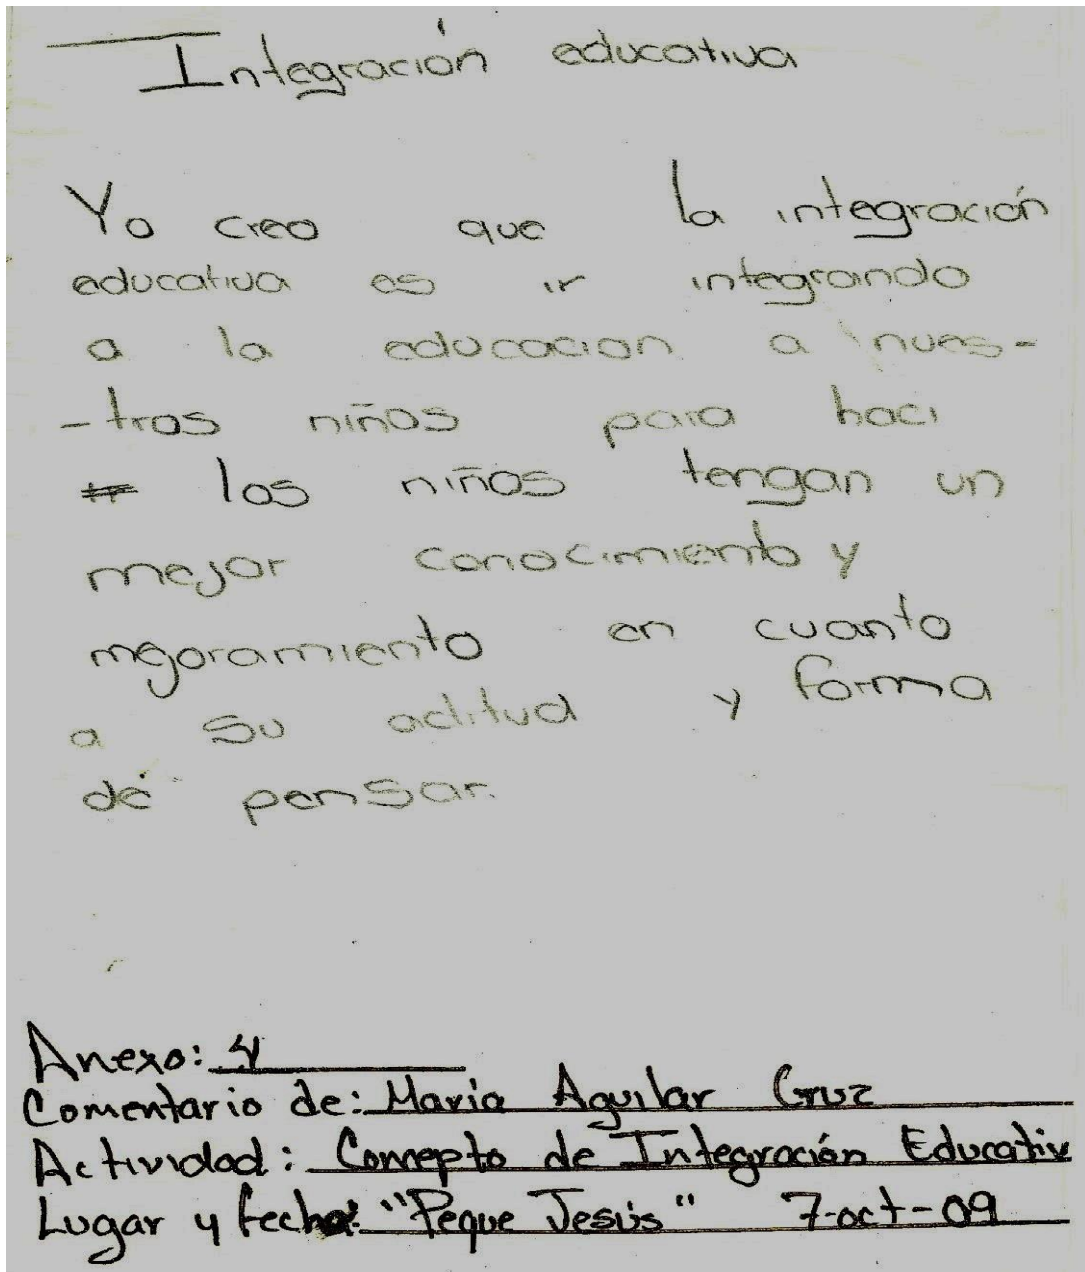 Integración educativa
Yo creo que la integración
educativa es ir integrando
a la educacion a nues-
-tros niños para haci
los niños tengan un
mejor conocimiento y
mejoramiento en cuanto
a su actitud y forma
dé pensar.
Anexo: 4
Comentario de: Maria Aguilar Cruz
Actividad: Concepto de Integración Educativ
Lugar y fecha: "Peque Jesús" 7-oct-09